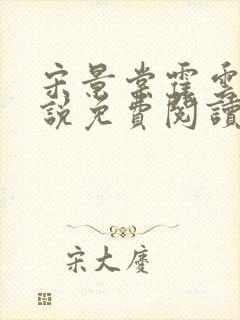 宋景棠霍雲
說免費閱讀
宋大慶